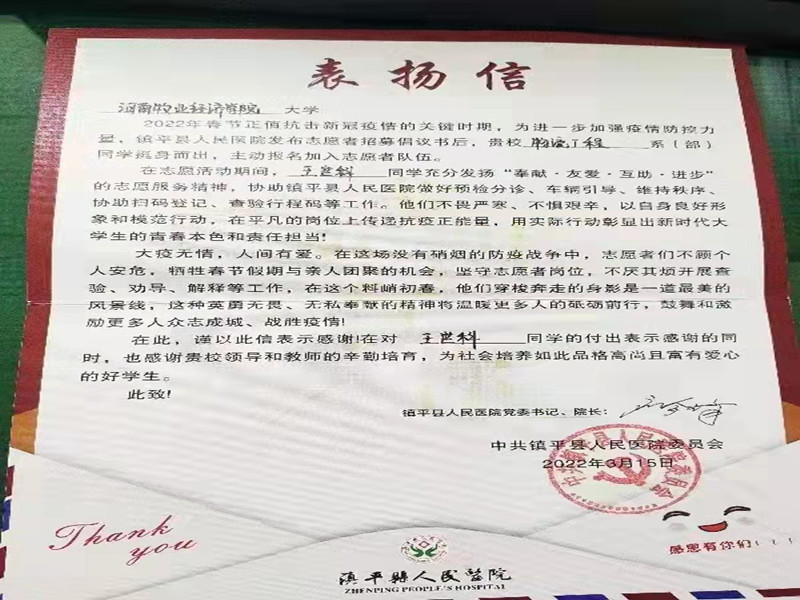 表扬信
河南牧业经济学院 大学
2022年春节正值抗击新冠疫情的关键时期，为进一步加强疫情防控力
量，镇平县人民医院发布志愿者招募倡议书后，贵校 物流工程 系（部）
同学挺身而出，主动报名加入志愿者队伍。
在志愿活动期间，王世科 同学充分发扬“奉献·友爱·互助·进步”
的志愿服务精神，协助镇平县人民医院做好预检分诊、车辆引导、维持秩序、
协助扫码登记、查验行程码等工作。他们不畏严寒、不惧艰辛，以自身良好形
象和模范行动，在平凡的岗位上传递抗疫正能量，用实际行动彰显出新时代大
学生的青春本色和责任担当!
大疫无情，人间有爱。在这场没有硝烟的防疫战争中，志愿者们不顾个
人安危，牺牲春节假期与亲人团聚的机会，坚守志愿者岗位，不厌其烦开展查
验、劝导、解释等工作，在这个料峭初春，他们穿梭奔走的身影是一道最美的
风景线，这种英勇无畏、无私奉献的精神将温暖更多人的砥砺前行，鼓舞和激
励更多人众志成城、战胜疫情!
在此，谨以此信表示感谢!在对 王世科 同学的付出表示感谢的同
时，也感谢贵校领导和教师的辛勤培育，为社会培养如此品格高尚且富有爱心
的好学生。
此致!
镇平县人民医院党委书记、院长：
中共镇平县人民医院委员会
2022年3月15日
Thank you
感恩有你们!!!
镇平县人民医院
ZHENPING PEOPLE'S HOSPITAL